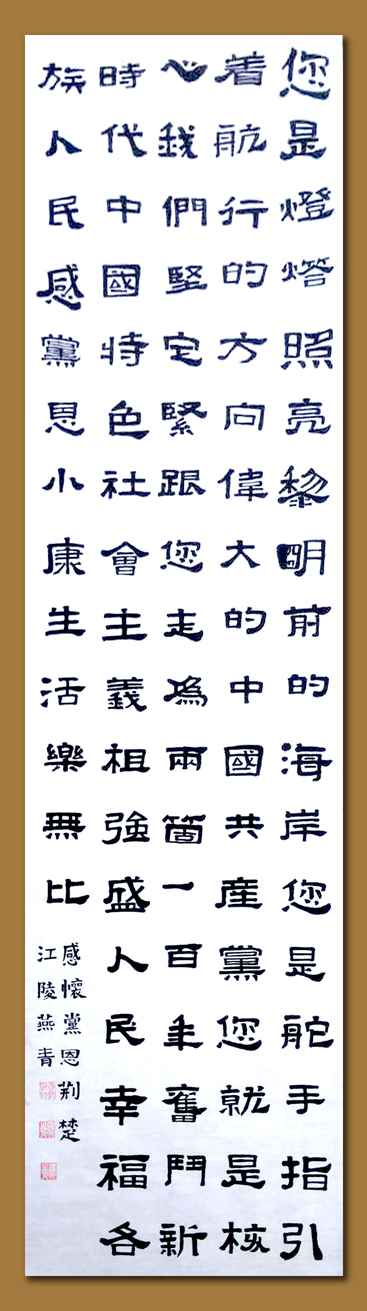 您是燈塔照亮黎明前的海岸您是舵手指引
着航行的方向偉大的中國共產黨您就是核
心我們堅定緊跟您走為兩箇一百年奮鬥新
時代中國特色社會主義祖強盛人民幸福各
族人民感黨恩小康生活樂無比
感懷黨恩荆楚
江陵燕青